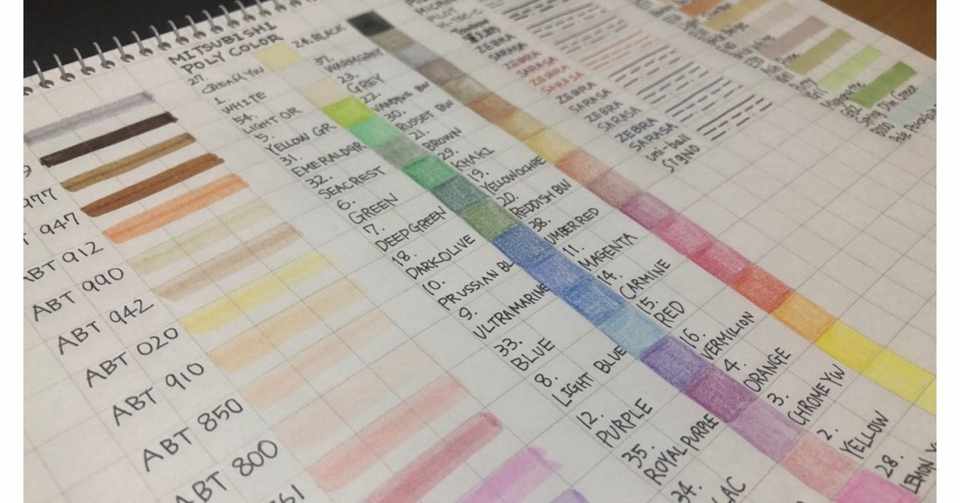 977
ABT 947
ABT 912
ABT 990
ABT 942
ABT 020
ABT 910
ABT 850
ABT 800
MITSUBISHI
POLY COLOR
27.
1.
WHITE
54.
LIGHT OR
5.
YELLOW GR
31.
EMERALD GR
32.
SEACREST
6.
GREEN
7.
DEEP GREEN
18.
DARK OLIVE
10.
PRUSSIAN BL
9.
ULTRAMARINE
33.
BLUE
8.
LIGHT BLUE
12.
PURPLE
35.
ROYAL PURPLE
34.
24. BLACK
37.
WARM GREY
23.
GREY
22.
30.
RUSSET BW
21.
BROWN
29.
KHAKI
19.
YELLOW OCHRE
20.
REDDISH BW
38.
UMBER RED
11.
MAGENTA
14.
CARMINE
15.
RED
16.
VERMILION
4.
ORANGE
3.
CHROME YW
2.
YELLOW
28.
LEMON
ZEBRA
SARASA
ZEBRA
SARASA
ZEBRA
SARASA
ZEBRA
SARASA
uni-ball
SIGNO